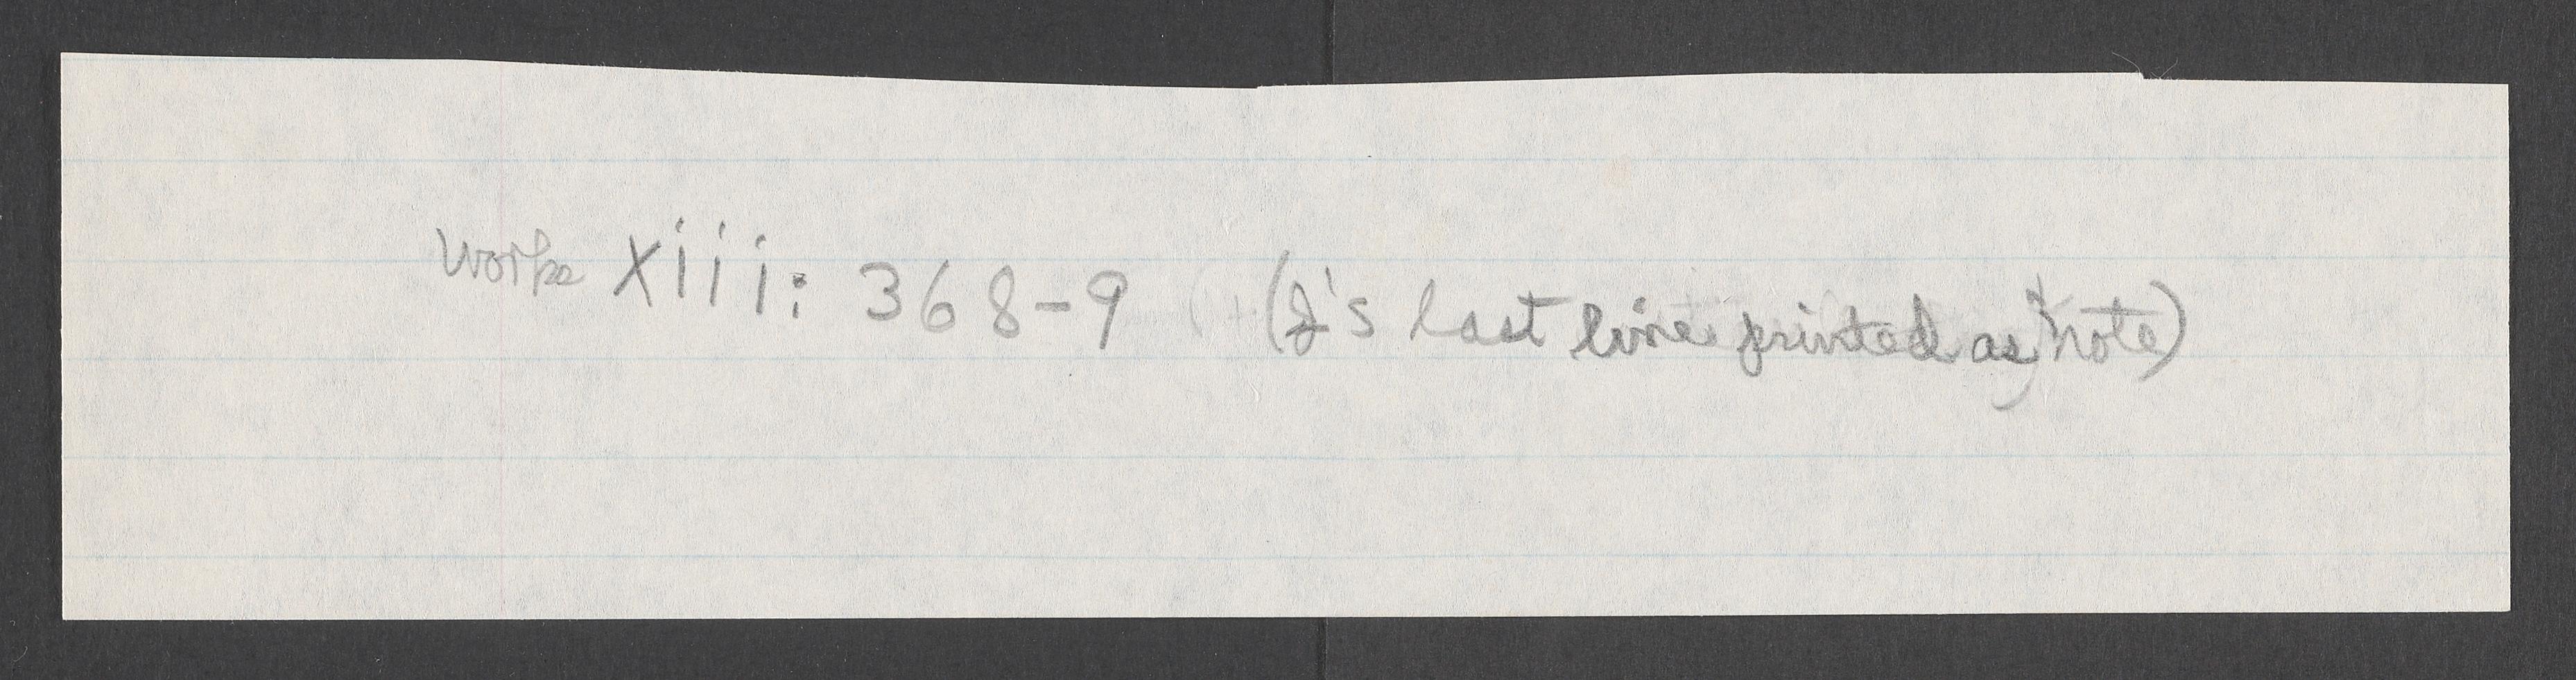 Works xiii: 368-9 (J's last line printed as note)